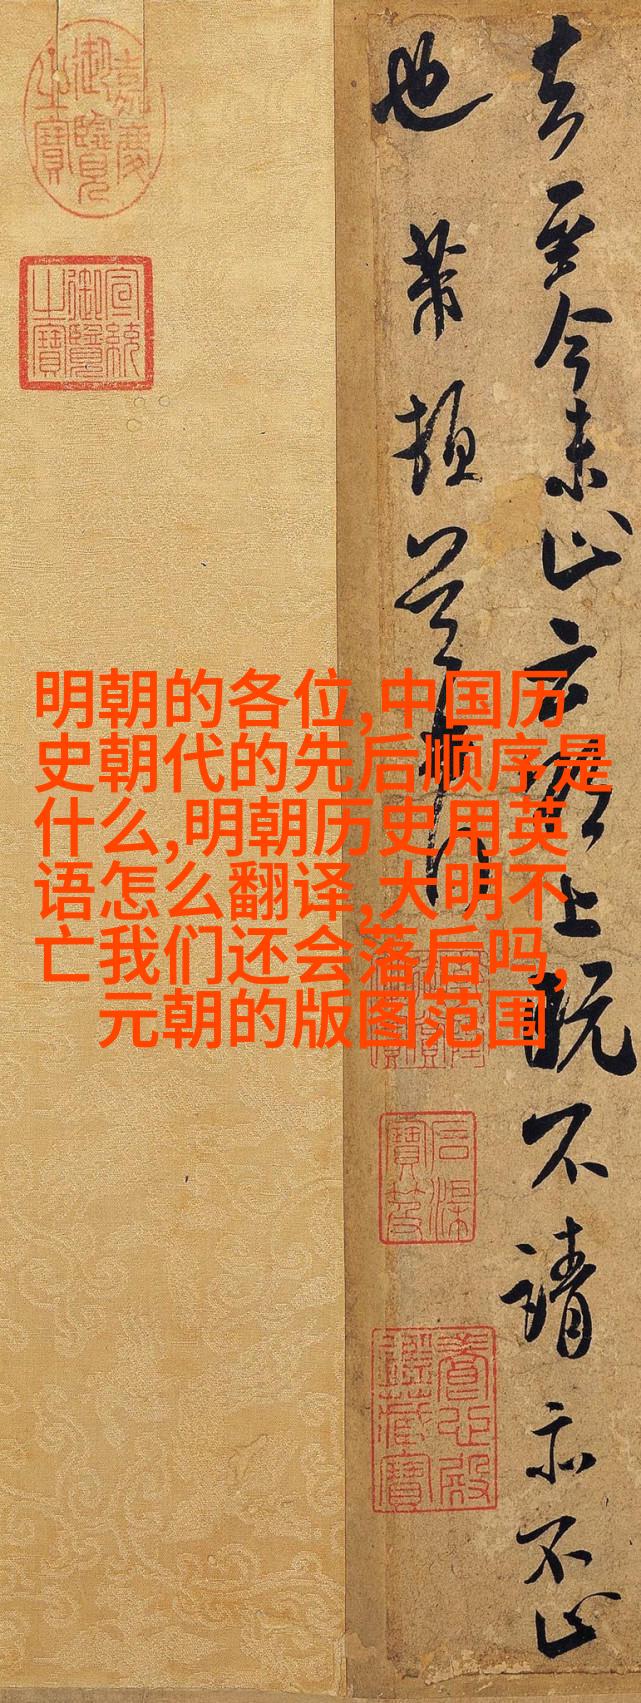 明朝的各位,中国历
史朝代的先后顺序是
什么,明朝历史用英
语怎么翻译,大明不
亡我们还会落后吗,
元朝的版图范围
去至今未止云上既不請亦不止
也芾頓首
嘉慶御覽之寶
宣統御覽之寶
石渠寶笈
養心殿鑑藏寶